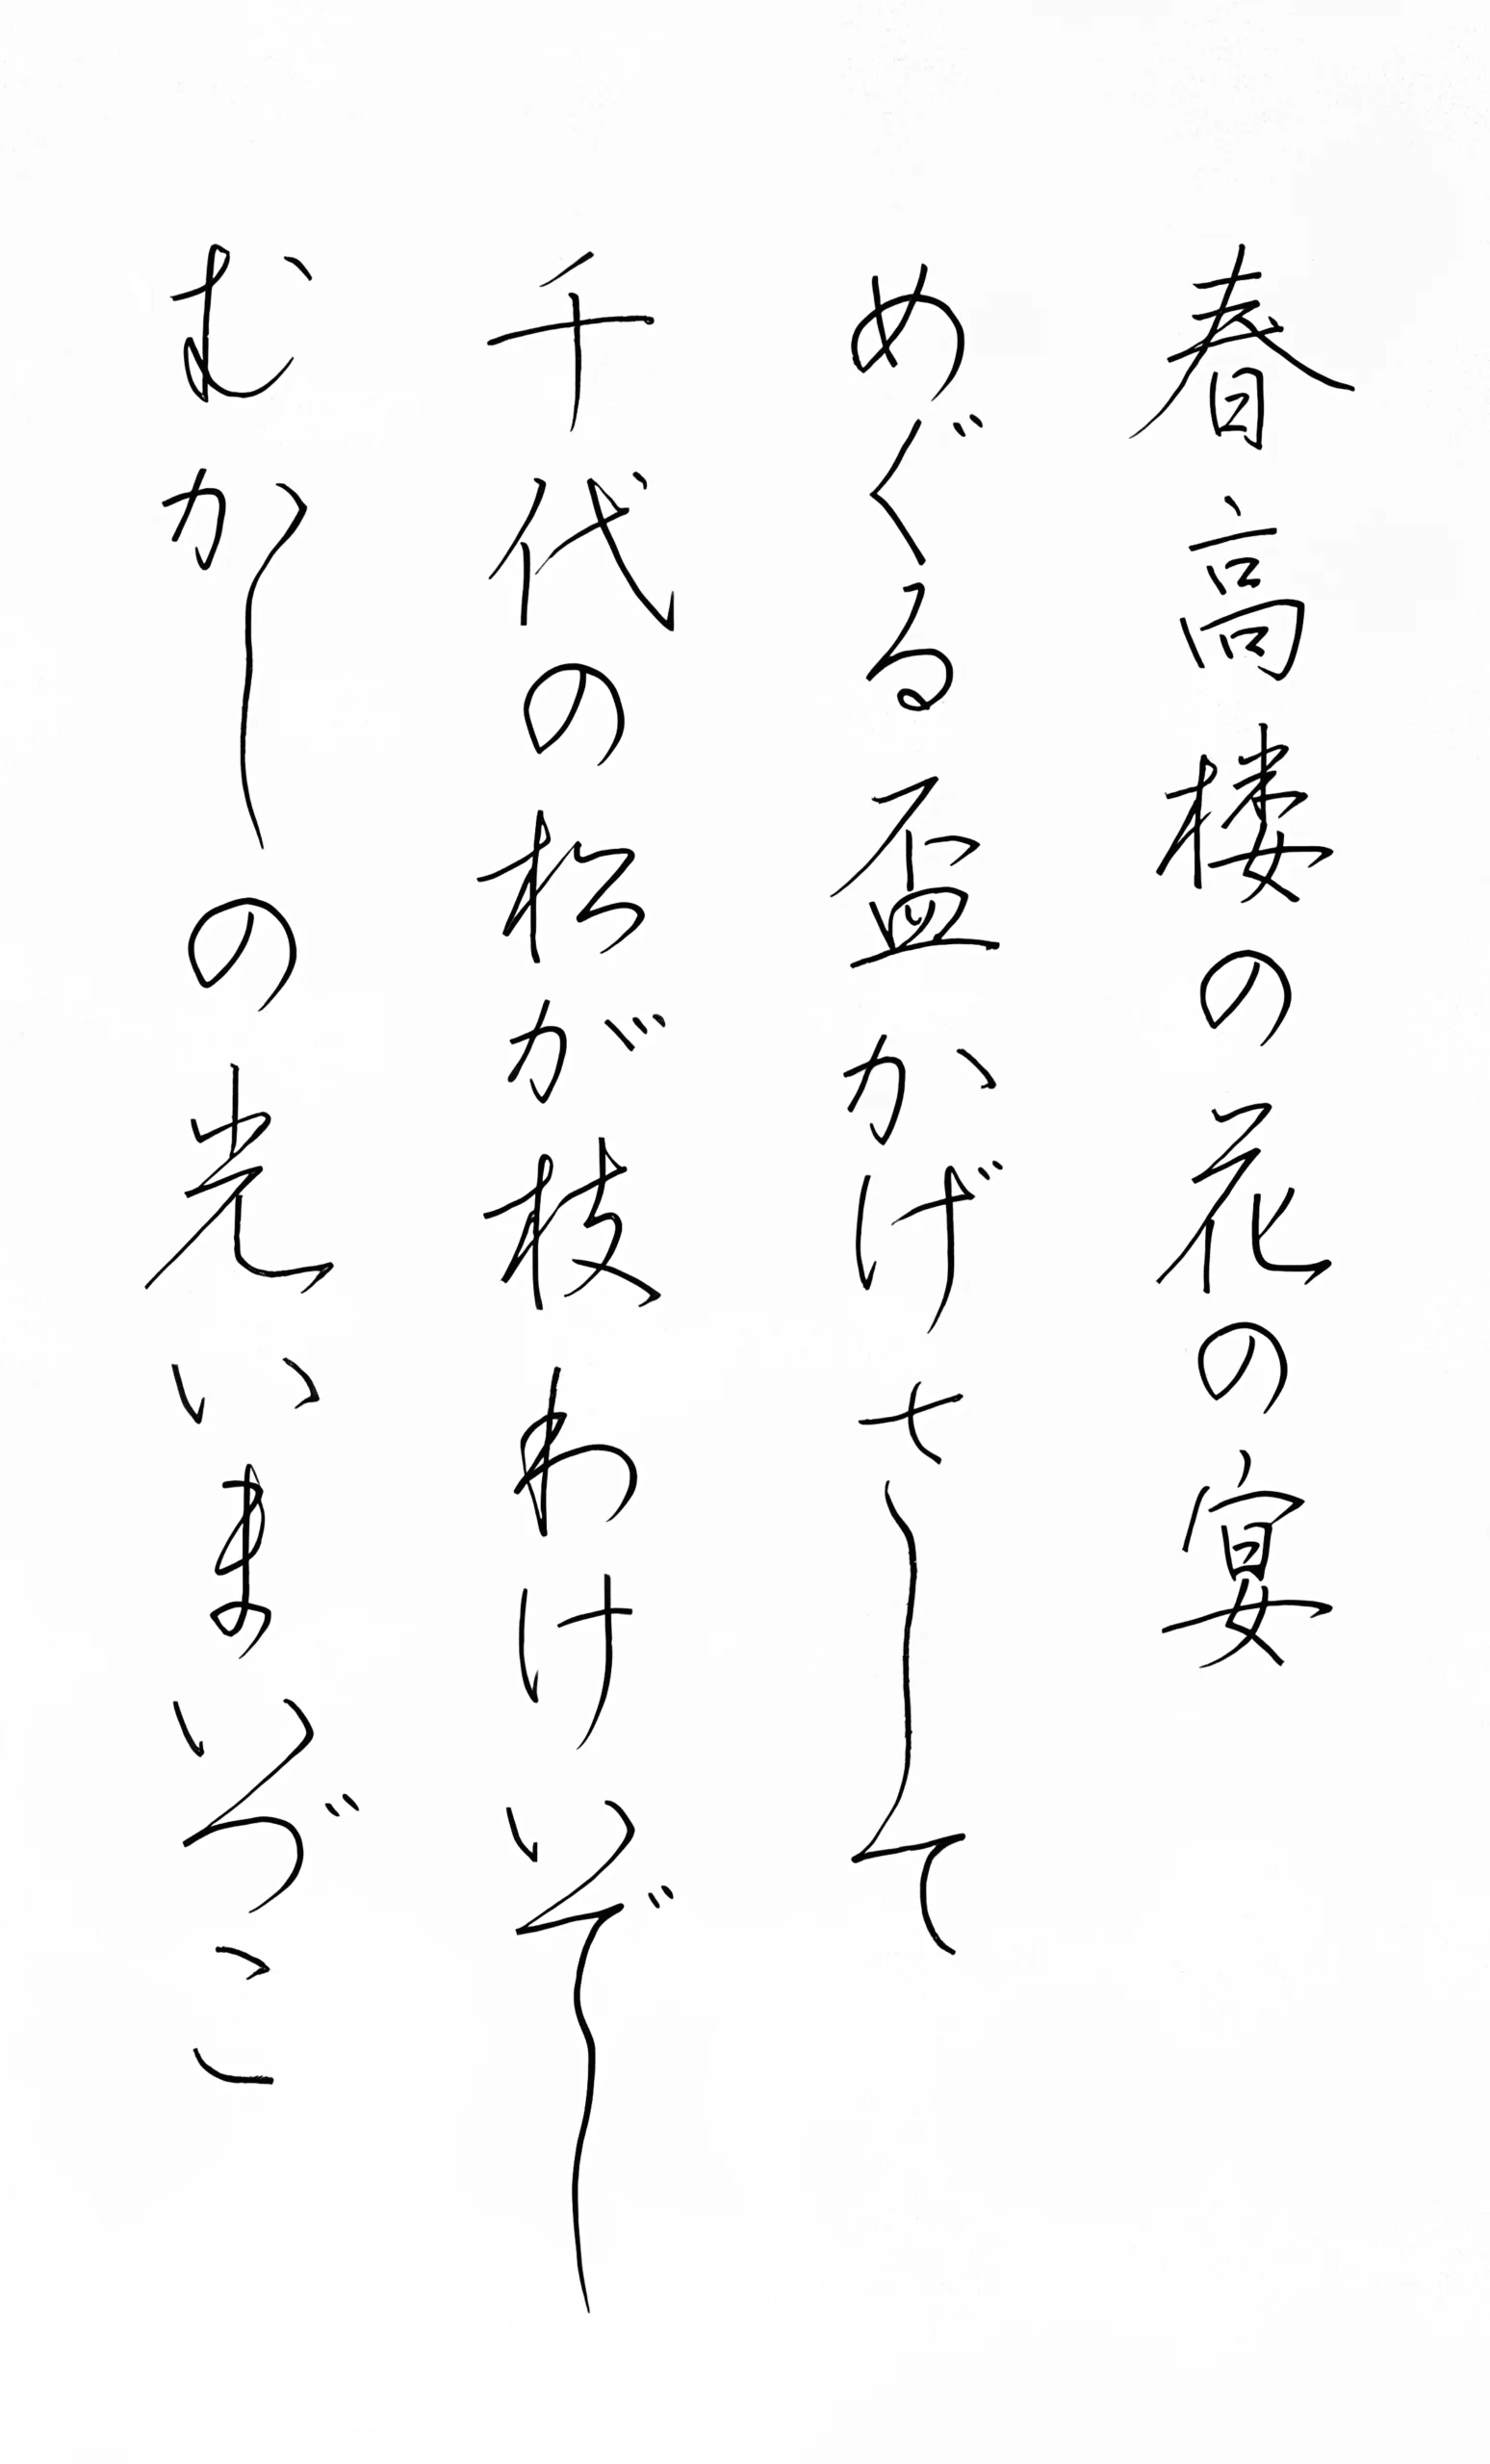 春高楼の花の宴
めぐる盃かげさして
千代の松が枝わけいでし
むかしの光いまいづこ